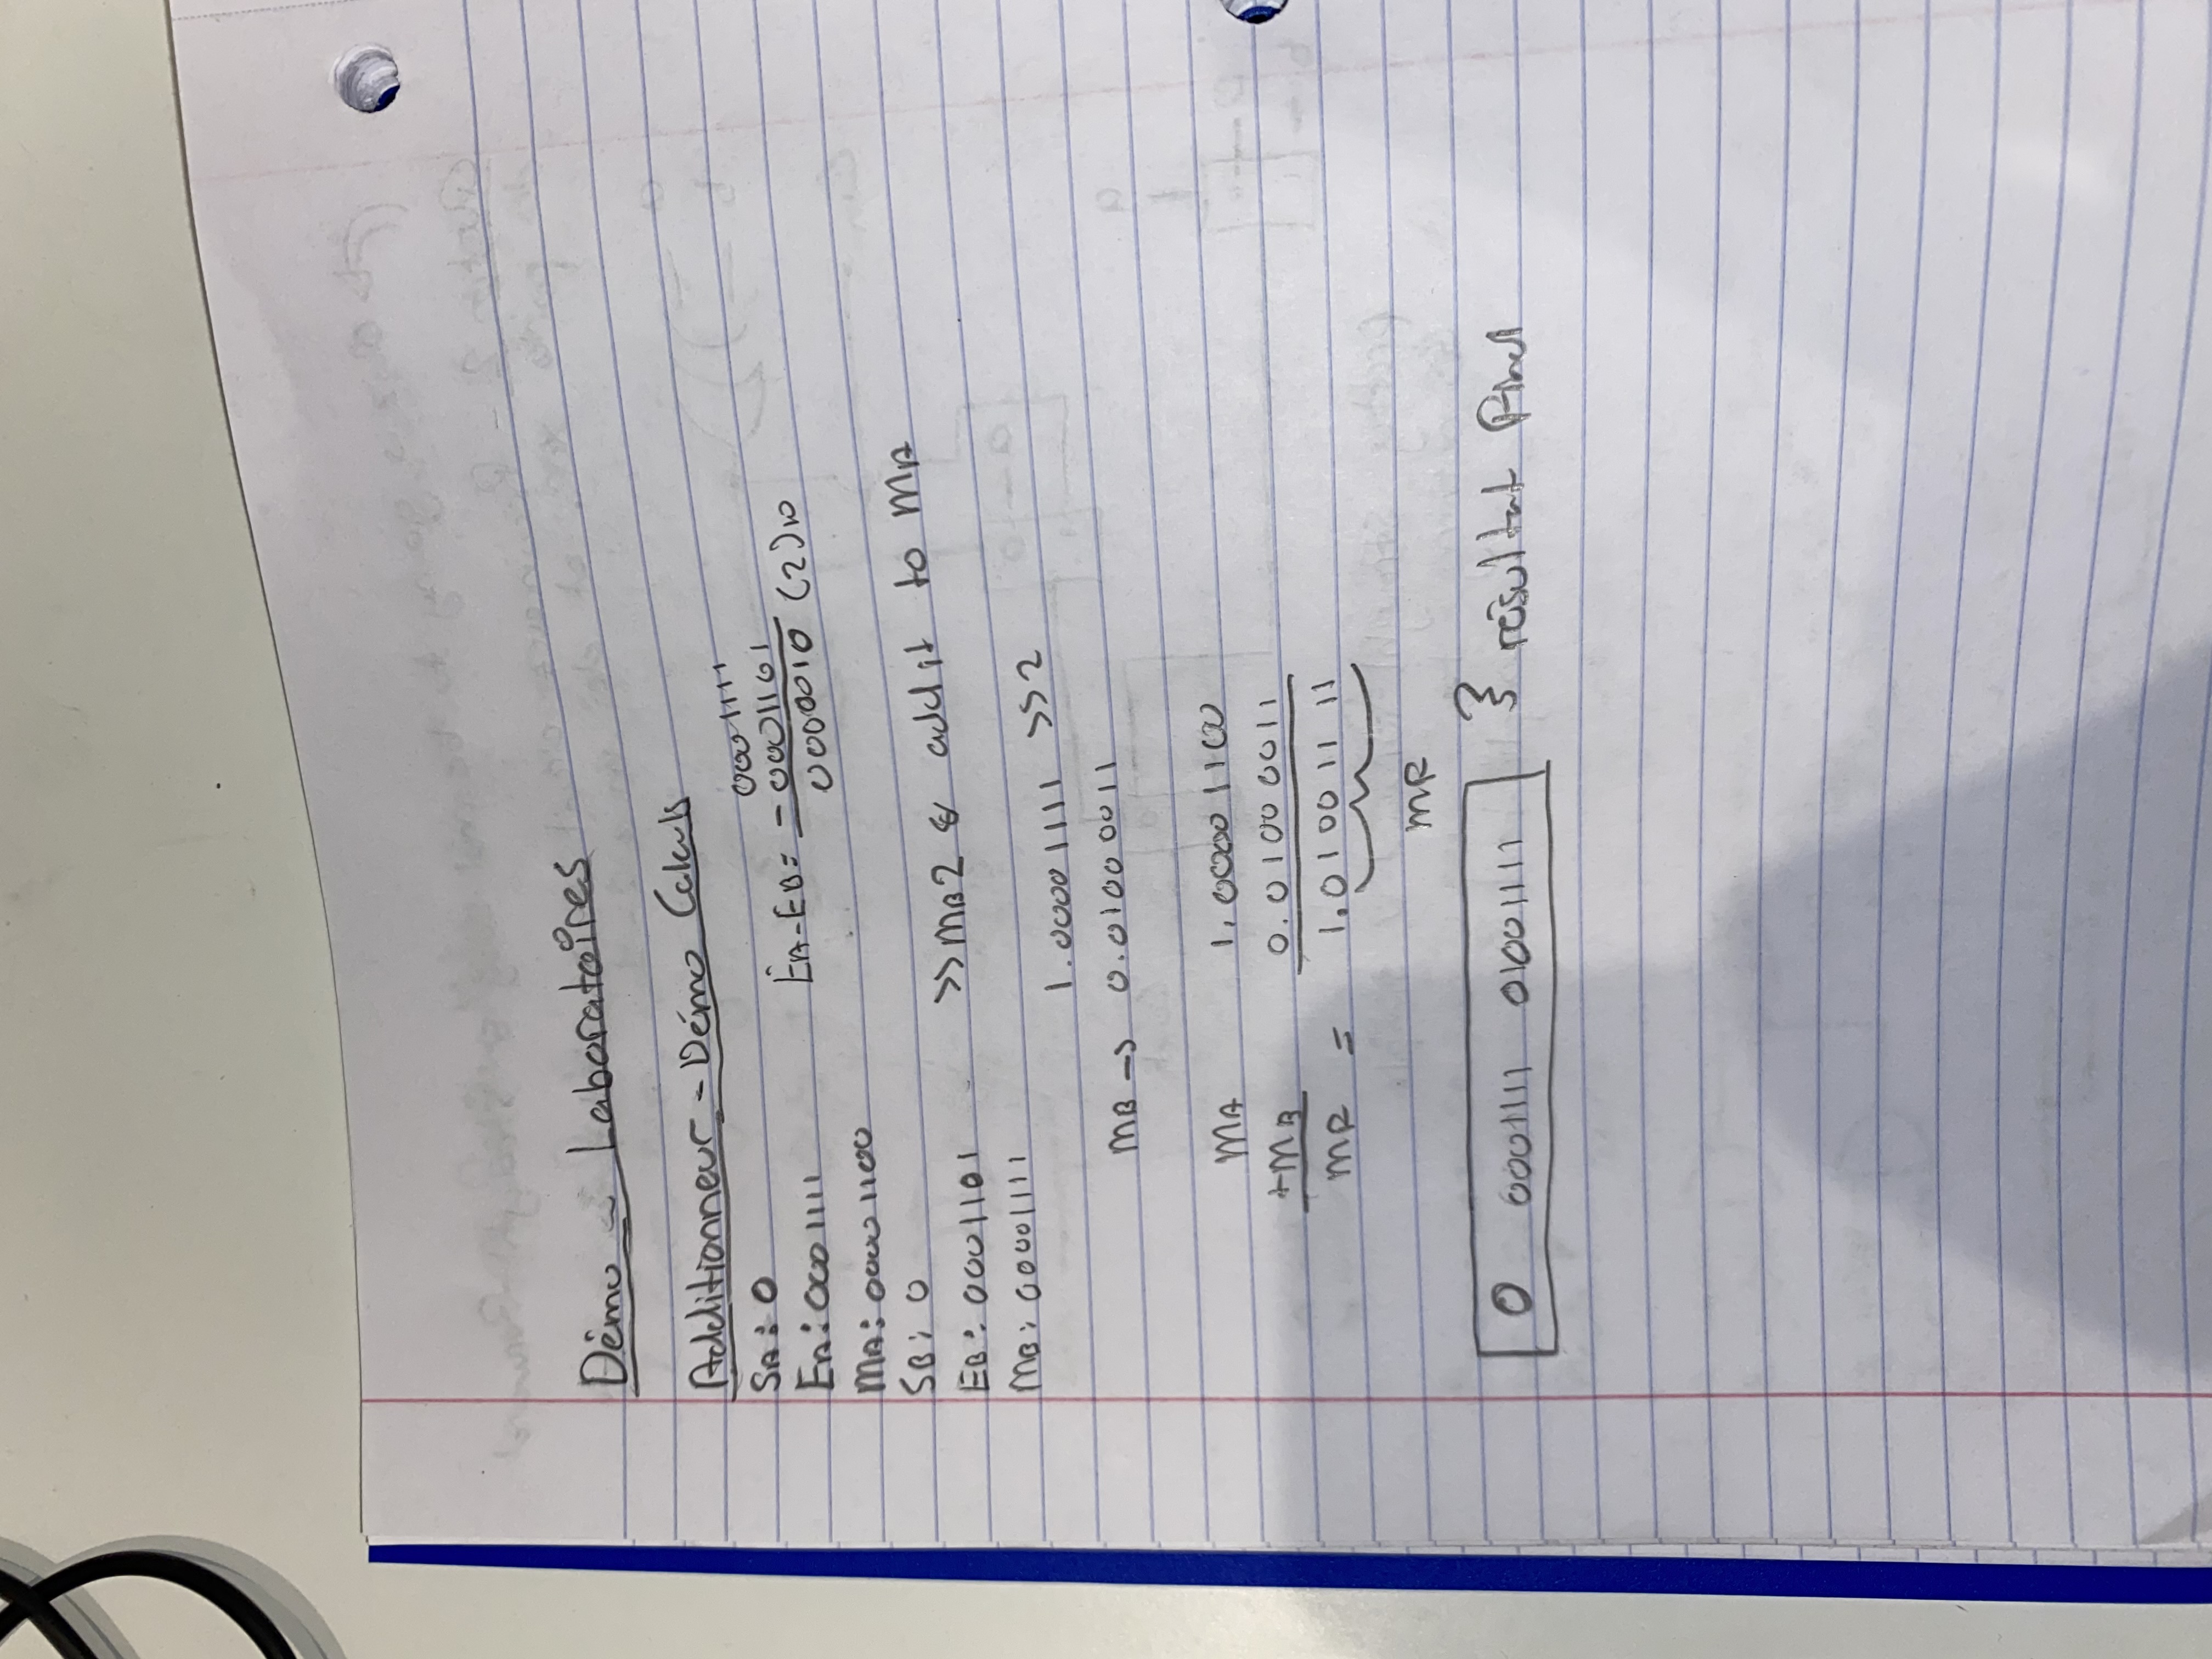 Démo - Laboratoires
Additionneur - Démo Calculs
SA: 0
EA: 0001111
MA: 00001100
SB: 0
EB: 0001101
MB: 00001111
0001111
EA-EB= -0001101
0000010 (2)10
>>MB2 & add it to MA
1.00001111 >>2
MB -> 0.01000011
MA 1.00001100
+MB 0.01000011
MR = 1.01001111
MR
0 0001111 01001111 } résultat final